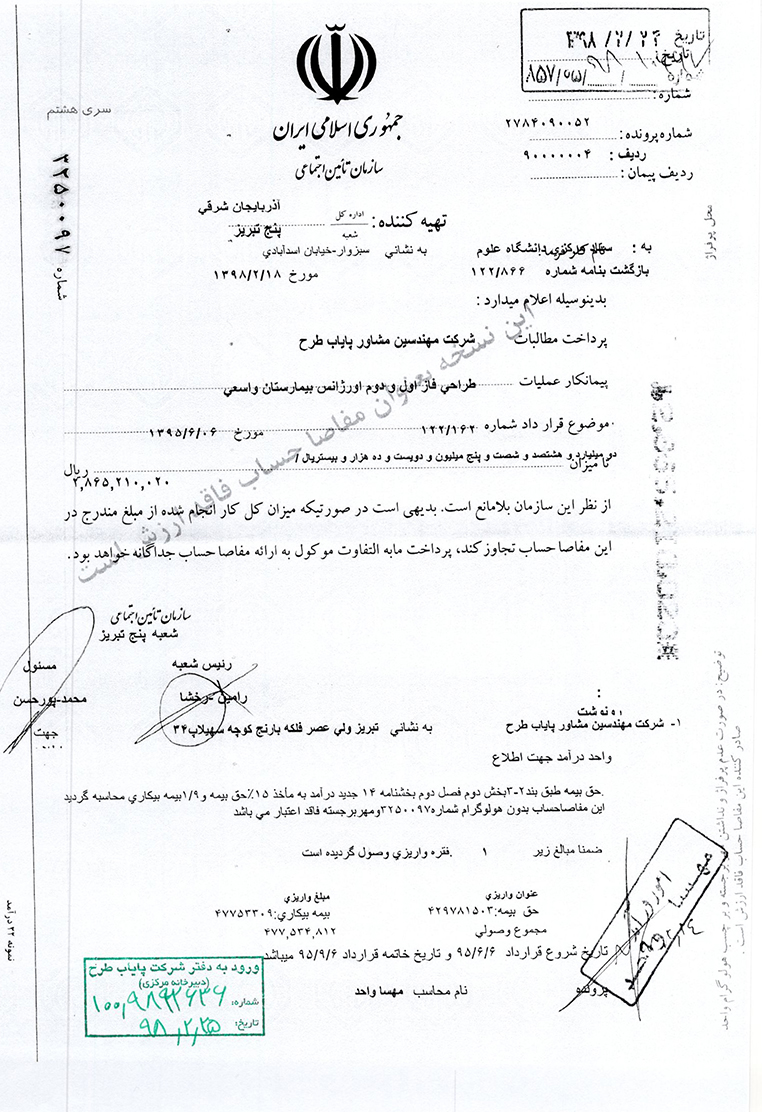 تاریخ ۱۳۹۸/۲/۲۲
تاریخ:
شماره
شماره:
شماره پرونده: ۲۷۸۴۰۹۰۰۵۲
ردیف: ۹۰۰۰۰۰۰۴
ردیف پیمان:
سری هشتم
جمهوری اسلامی ایران
سازمان تأمین اجتماعی
شماره ۳۲۵۰۰۹۷
محل پرفراژ
تهیه کننده: اداره کل آذربایجان شرقي
شعبه پنج تبریز
به: دانشگاه علوم به نشاني سبزوار-خیابان اسدآبادي
بازگشت بنامه شماره ۱۲۲/۸۶۶ مورخ ۱۳۹۸/۲/۱۸
بدینوسیله اعلام میدارد:
پرداخت مطالبات شرکت مهندسین مشاور پایاب طرح
پیمانکار عملیات طراحي فاز اول و دوم اورژانس بیمارستان واسعي
موضوع قرار داد شماره ۱۲۲/۱۶۲ مورخ ۱۳۹۵/۶/۰۶
دو میلیارد و هشتصد و شصت و پنج میلیون و دویست و ده هزار و بیستریال /
تا میزان ۲,۸۶۵,۲۱۰,۰۲۰ ریال
از نظر این سازمان بلامانع است. بدیهی است در صورتیکه میزان کل کار انجام شده از مبلغ مندرج در
این مفاصا حساب تجاوز کند، پرداخت مابه التفاوت موکول به ارائه مفاصا حساب جداگانه خواهد بود.
این نسخه بعنوان مفاصا حساب فاقد ارزش است
سازمان تأمین اجتماعی
شعبه پنج تبریز
رئیس شعبه مسئول
رامین -رخشا محمد-پورحسن
جهت
رونوشت:
۱- شرکت مهندسین مشاور پایاب طرح به نشاني تبریز ولي عصر فلکه بارنج کوچه سهیلاپ۳۴
واحد درآمد جهت اطلاع
.حق بیمه طبق بند۲-۳بخش دوم فصل دوم بخشنامه ۱۴ جدید درآمد به مأخذ ۱۵٪حق بیمه و ۱/۹بیمه بیکاري محاسبه گردید
این مفاصاحساب بدون هولوگرام شماره۳۲۵۰۰۹۷ومهربرجسته فاقد اعتبار مي باشد
ضمنا مبالغ زیر ۱ .فقره واریزي وصول گردیده است
عنوان واریزي مبلغ واریزي
حق بیمه:۴۲۹۷۸۱۵۰۳ بیمه بیکاري:۴۷۷۵۳۳۰۹
مجموع وصولي ۴۷۷,۵۳۴,۸۱۲
تاریخ شروع قرارداد ۹۵/۶/۶ و تاریخ خاتمه قرارداد ۹۵/۹/۶ میباشد
پرونده نام محاسب مهسا واحد
ورود به دفتر شرکت پایاب طرح
(دبیرخانه مرکزی)
شماره:
تاریخ: ۹۸,۲,۲۵
نمونه ۲۲ درآمد
صادر کننده این مفاصا حساب فاقد ارزش است.